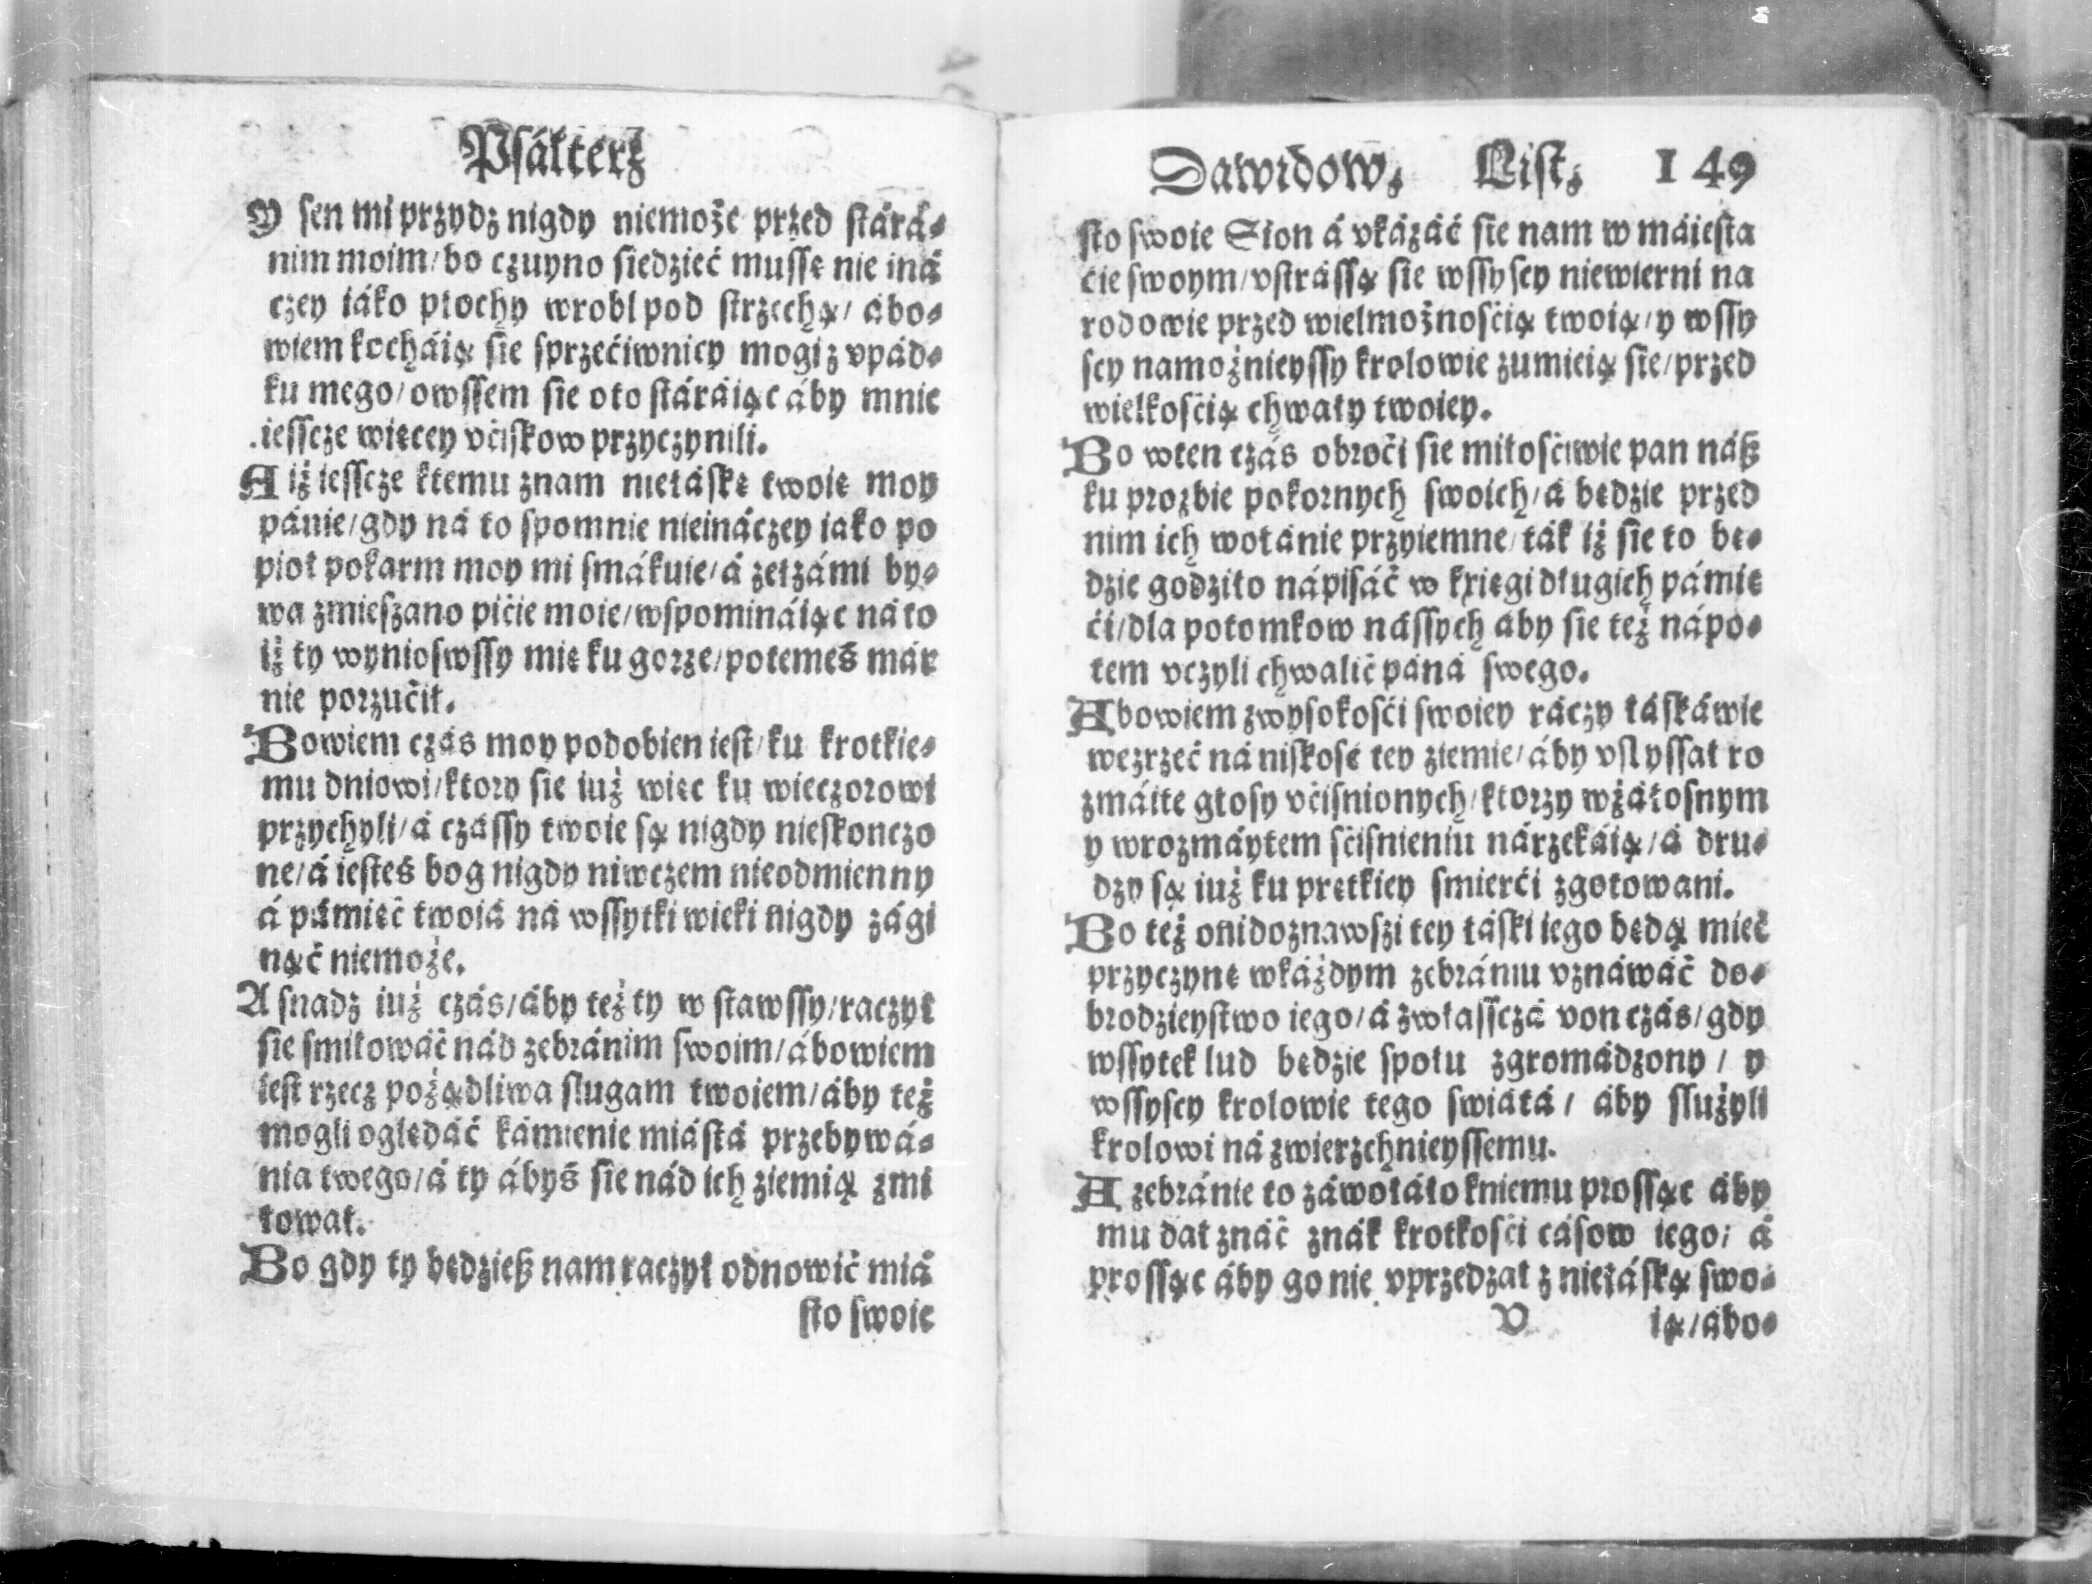 Psálterz
Y sen mi przydz nigdy niemoże przed stárá-
nim moim/ bo czuyno siedzieć mussę nie iná
czey iáko płochy wrobl pod strzechą/ ábo-
wiem kocháią sie sprzećiwnicy mogi z vpád-
ku mego/ owssem sie oto stáráiąc áby mnie
iesscze więcey vćiskow przyczynili.
A iż iesscze ktemu znam niełáskę twoię moy
pánie/ gdy ná to spomnie nieináczey iako po
pioł pokarm moy mi smákuie/ á zełzámi by-
wa zmieszano pićie moie/ wspomináiąc ná to
iż ty wynioswssy mię ku gorze/ potemeś már
nie porzućił.
Bowiem czás moy podobien iest/ ku krotkie-
mu dniowi/ ktory sie iuż więc ku wieczorowi
przychyli/ á czássy twoie są nigdy nieskonczo
ne/ á iesteś bog nigdy niwczem nieodmienny
á pámięć twoiá ná wssytki wieki nigdy zági
nąć niemoże.
A snadz iuż czás/ áby też ty w stawssy/ raczył
sie smiłowáć nád zebránim swoim/ ábowiem
iest rzecz pożądliwa slugam twoiem/ áby też
mogli oględáć kámienie miástá przebywá-
nia twego/ á ty ábyś sie nád ich ziemią zmi
łował.
Bo gdy ty będzieß nam raczył odnowić miá
sto swoie
Dawidow, List, 149
sto swoie Sion á vkázáć sie nam w máiesta
ćie swoym/ vstrássą sie wssyscy niewierni na
rodowie przed wielmożnosćią twoią/ y wssy
scy namożnieyssy krolowie zumieią sie/ przed
wielkosćią chwały twoiey.
Bo wten czás obroći sie miłosćiwie pan náß
ku prozbie pokornych swoich/ á będzie przed
nim ich wołánie przyiemne/ ták iż sie to bę-
dzie godziło nápisáć w kxięgi długich pámię
ći/ dla potomkow nássych aby sie też nápo-
tem vczyli chwalić páná swego.
Abowiem zwysokosći swoiey ráczy łáskáwie
wezrzeć ná niskosć tey ziemie/ áby vslyssał ro
zmáite głosy vćisnionych/ ktorzy wżáłosnym
y wrozmáytem sćisnieniu nárzekáią/ á dru-
dzy są iuż ku prętkiey smierći zgotowani.
Bo też oni doznawszi tey łáski iego będą mieć
przyczynę wkáżdym zebrániu vznáwáć do-
brodzieystwo iego/ á zwłassczá von czás/ gdy
wssytek lud będzie społu zgromádzony/ y
wssyscy krolowie tego swiátá/ áby służyli
krolowi ná zwierzchnieyssemu.
A zebránie to záwołáło kniemu prossąc áby
mu dał znáć znák krotkosći cásow iego/ á
prossąc áby go nie vprzedzał z niełáską swo-
V ią/ ábo-